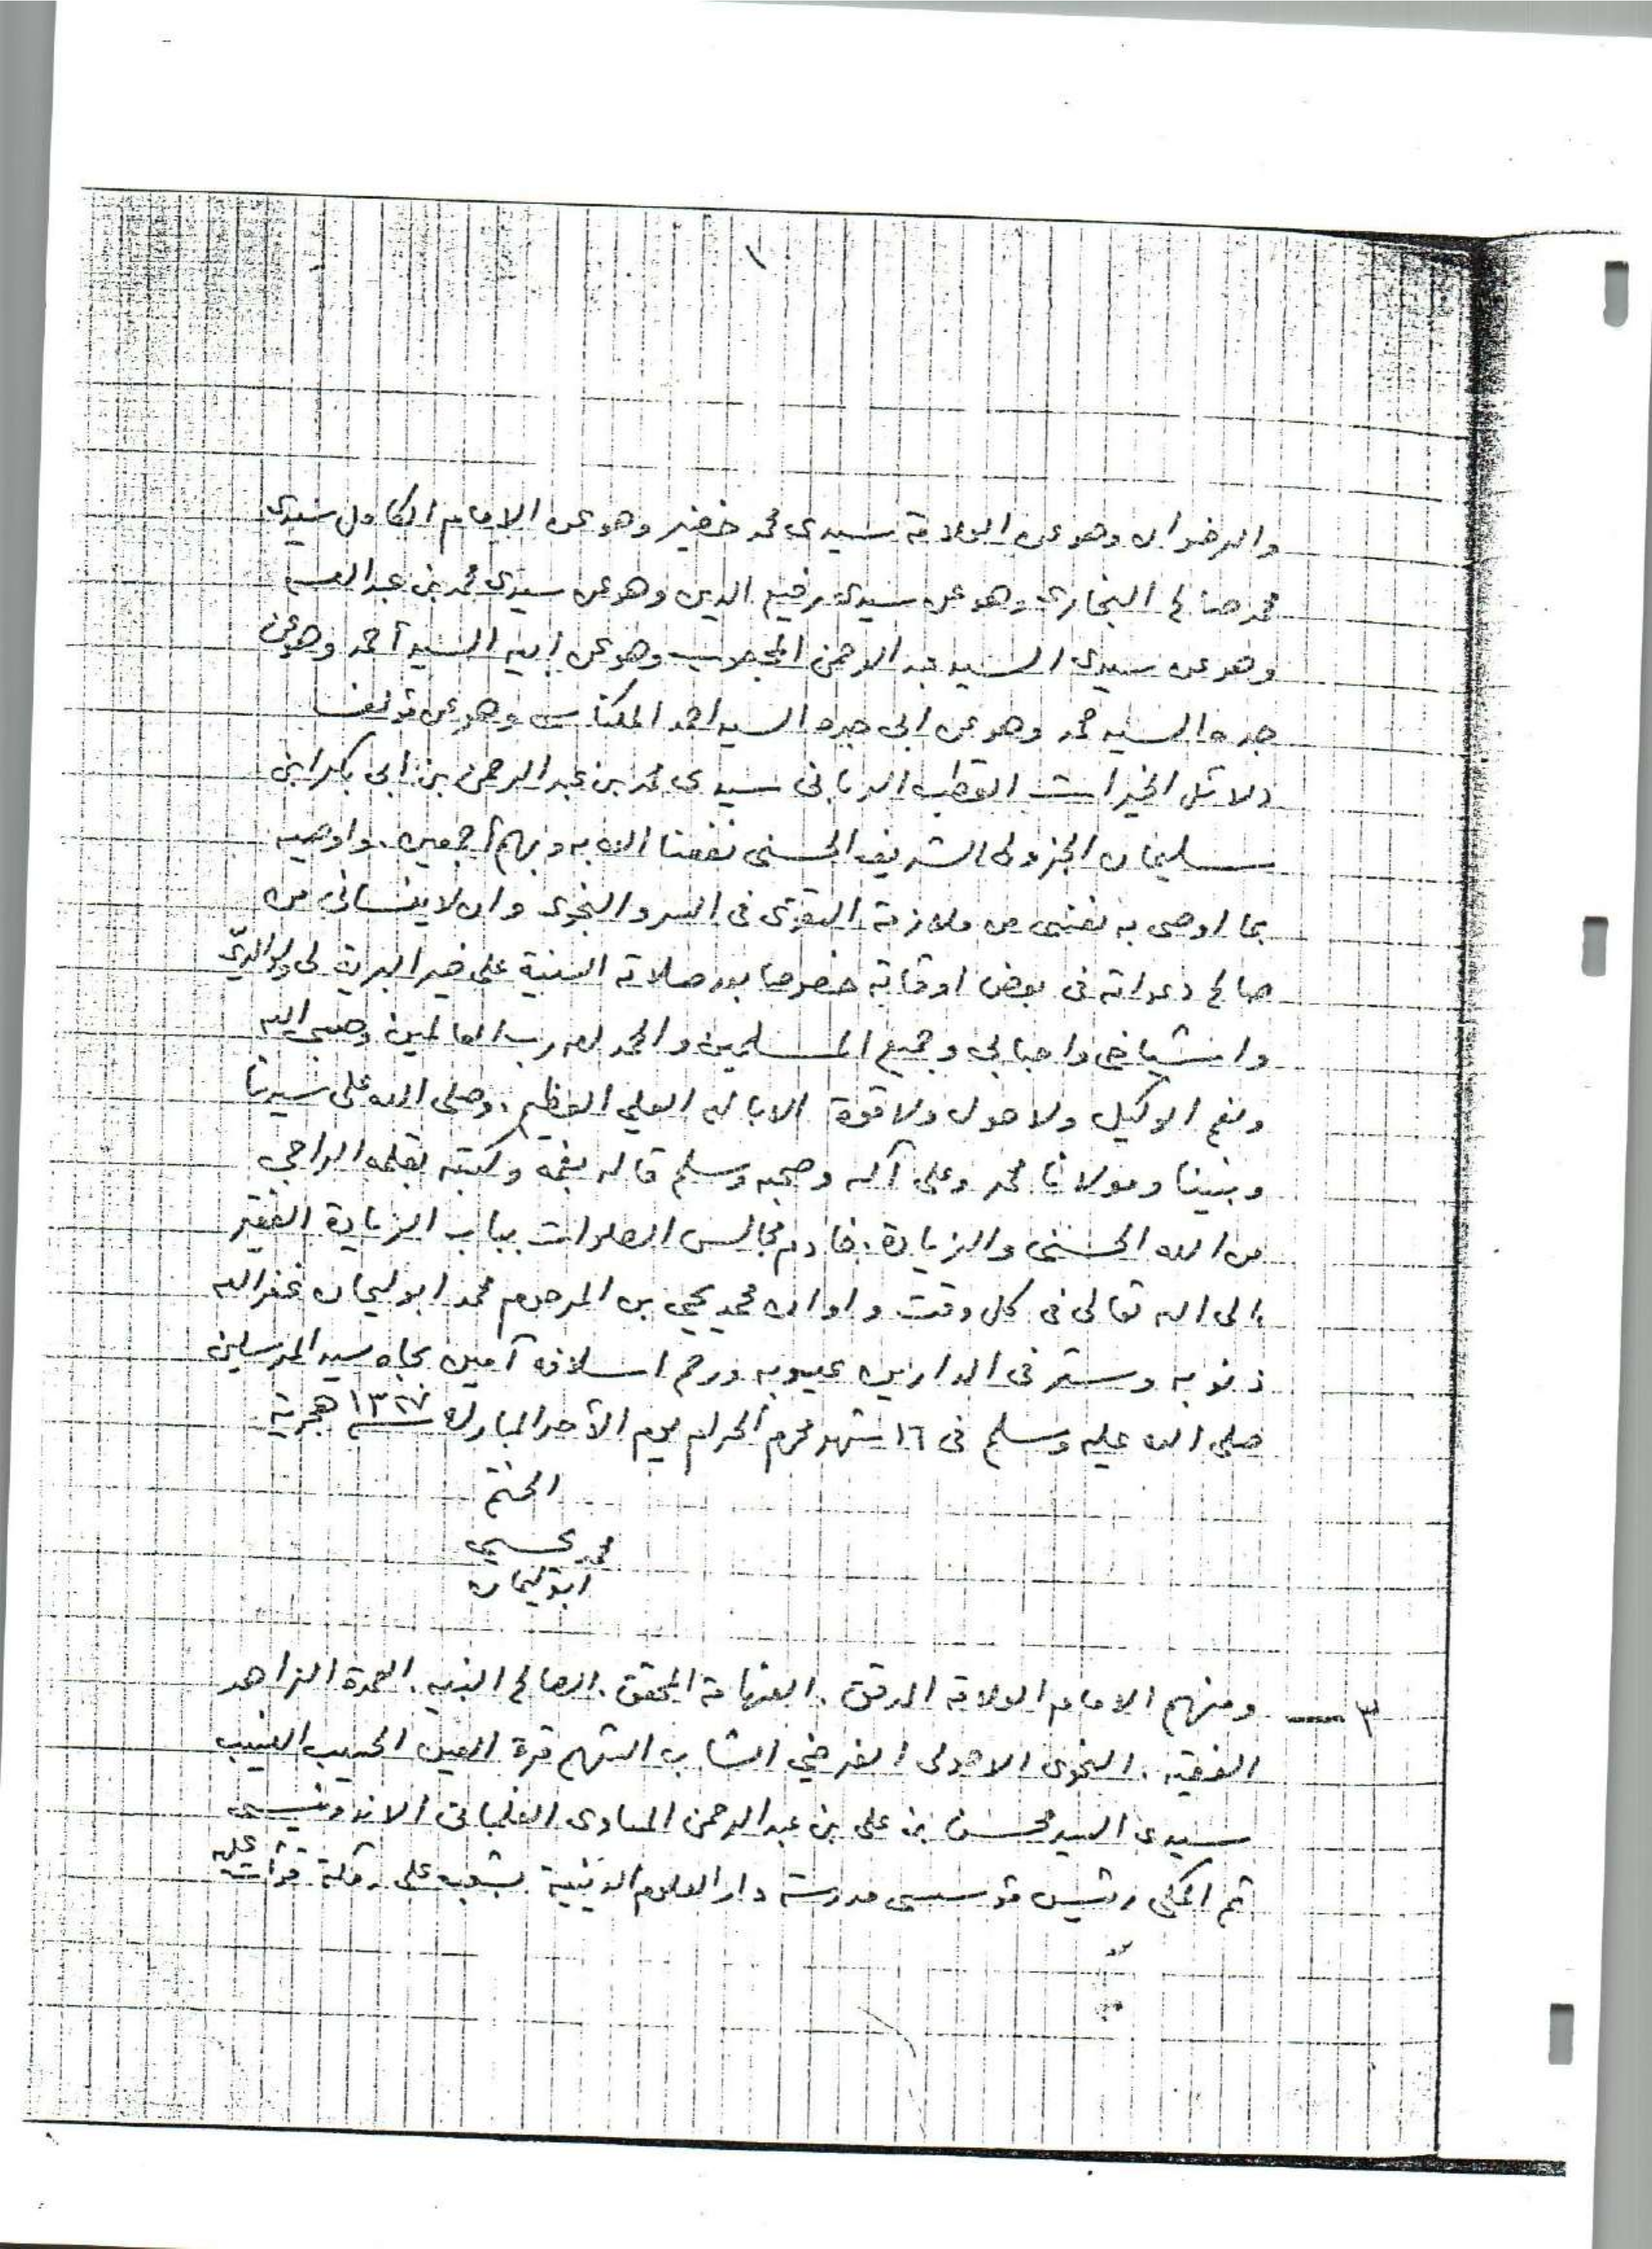 ١
والرضوان وهو عن العلامة سيدى محمد خضير وهو عن الامام الكامل سيدى
محمد صالح البخارى وهو عن سيدى رفيع الدين وهو عن سيدى محمد بن عبد الله
وهو عن سيدى السيد عبد الرحمن المحجوب وهو عن ابيه السيد أحمد وهو عن
جده السيد محمد وهو عن ابى جده السيد احمد المكناسى وهو عن مؤلف
دلائل الخيرات القطب الربانى سيدى محمد بن عبد الرحمن بن ابى بكر ابن
سليمان الجزولى الشريف الحسنى نفعنا الله به وبهم أجمعين. واوصيه
بما اوصى به نفسى من ملازمة التقوى فى السر والنجوى وان لا ينسانى من
صالح دعواته فى بعض اوقاته خصوصا بعد صلاته السنية على خير البرية لى ولوالدىّ
واشياخى واحبابى وجميع المسلمين والحمد لله رب العالمين وحسبى الله
ونعم الوكيل ولا حول ولا قوة الا بالله العلي العظيم. وصلى الله على سيدنا
ونبينا ومولانا محمد وعلى آله وصحبه وسلم قاله بفمه وكتبه بقلمه الراجي
من الله الحسنى والزيادة. خادم مجالس الصلوات بباب الزيادة الفقير
الى الله تعالى فى كل وقت واوان محمد يحيى بن المرحوم محمد ابوليمان غفر الله
ذنوبه وستر فى الدارين عيوبه ورحم اسلافه آمين بجاه سيد المرسلين
صلى الله عليه وسلم فى ١٦ شهر محرم الحرام يوم الأحد المبارك سنة ١٣٢٧ هجرية
الختم
محمد يحيى
ابوليمان
٣ — ومنهم الامام العلامة المدقق. الفهامة المحقق. الصالح النبيه. العمدة الزاهد
الفقيه. النحوى الاصولى الفرضي الشاب الشهم قرة العين الحبيب النسيب
سيدى السيد محسن بن على بن عبد الرحمن المساوى الفلمبانى الاندونيسى
ثم المكى رئيس مؤسسى مدرسة دار العلوم الدينية بشعب على بمكة قرأت عليه